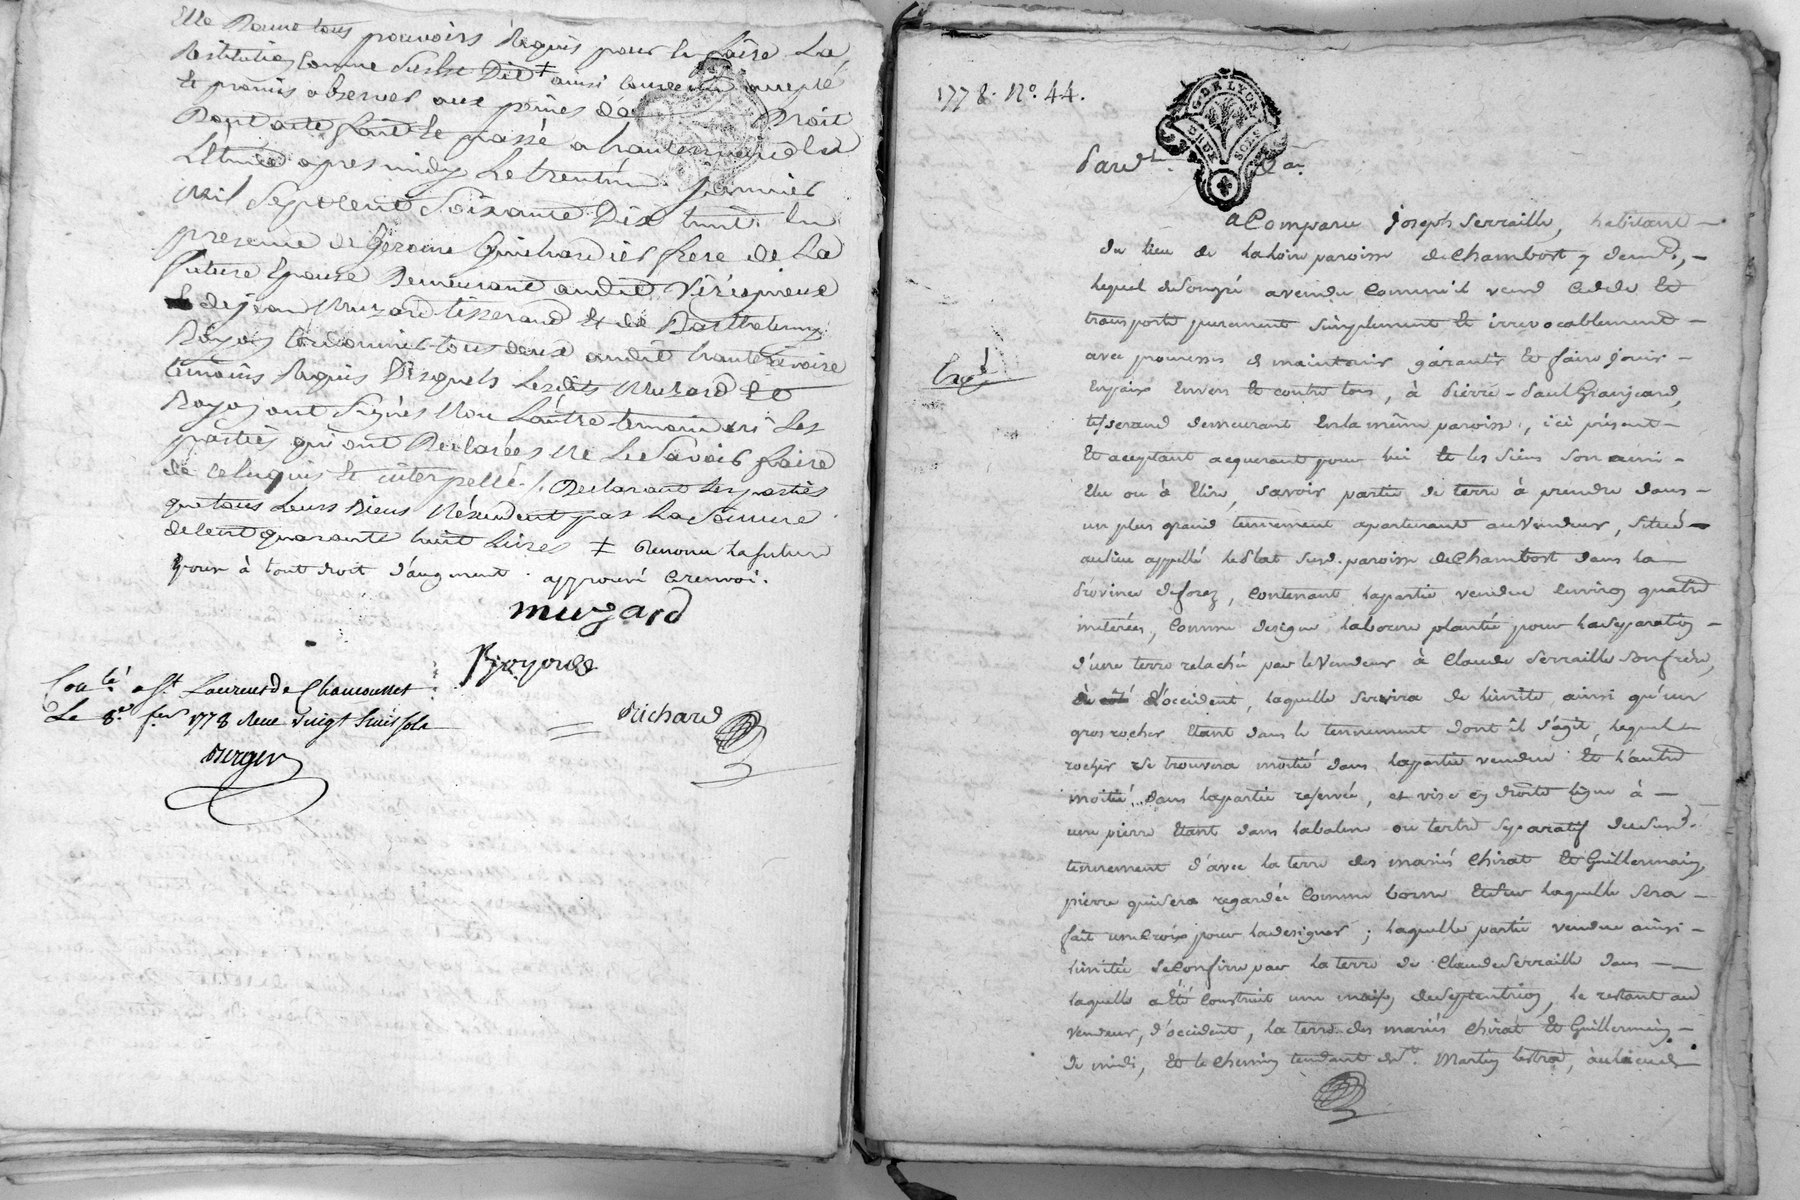 Elle Donne tous pouvoirs Requis pour le faire La
Restitution Comme Susdit Dit ‡ ainsi Convenu accepté
Et promis observer aux peines de Droit
Dont acte fait Et passé a hauterivoire les
L'Etude apres midy Le trentieme Janvier
Mil Sept Cent Soixante Dix huit En
presence de Gerome Guichard ies frere de La
future Epouse Demeurant audit Viricigneux
de jean Muzard tisserand Et de Barthelemy
Royon Cordonnier tous deux audit hauterivoire
temoins Requis Desquels Lesdits Muzard Et
Royon ont Signés Non L'autre temoin ni Les
parties qui ont Declarées Ne Le Savoir faire
de ce Enquis Et interpellé ./. Declarant Les parties
que tous Leurs Biens N'Excedent pas La Somme
de Cent quarante huit Livres ‡ Renonce La future
Epouse à tout droit d'augment . approuvé Ce renvoi .
muzard
Royon
Conlé. à St. Laurent de Chamousset
Le 8e. fev 1778 Reçu vingt huit sols
Richard
Berger
1778. No. 44.
G. DE LYON
Pardt.
a Comparu Joseph Serraille, habitant
du lieu de la Loire paroisse de Chambost y demt.,
lequel de Son gré a vendu Comme il vend Cede Et
transporte purement Simplement Et irrevocablement
avec promesses de maintenir garantir Et faire jouir
En paix Envers Et contre tous, à Pierre-Paul Granjeard,
Expé.
tisserand demeurant En la même paroisse, ici présent
Et aceptant acquerant pour lui Et les Siens Son ami
Elu ou à Elire, Savoir partie de terre à prendre dans
un plus grand tennement apartenant au Vendeur, Situé
au lieu appellé le Plat Susd. paroisse de Chambost dans la
Province de forez, Contenant la partie vendue Environ quatre
méterées, Comme designe la borne plantée pour la Separation
d'une terre relachée par le Vendeur à Claude Serraille Son frère,
d'occident, laquelle Servira de limite ainsi qu'un
gros rocher Etant dans le tennement dont il S'agit, lequel
rocher Se trouvera moitié dans la partie vendue Et l'autre
moitié dans la partie reservée, et vise En droite ligne à
une pierre Etant dans la balme ou tertre Separatif du Susd.
tennement d'avec la terre des mariés Chirat Et Guillermain,
pierre qui Sera regardée Comme borne Et Sur laquelle Sera
fait une Croix pour la designer ; laquelle partie vendue ainsi
limitée Se Confine par la terre de Claude Serraille dans
laquelle a Eté Construit une maison de Septentrion, le restant au
Vendeur, d'occident, la terre des mariés Chirat Et Guillermain
de midi, Et le Chemin tendant de St. Martin Lestra,